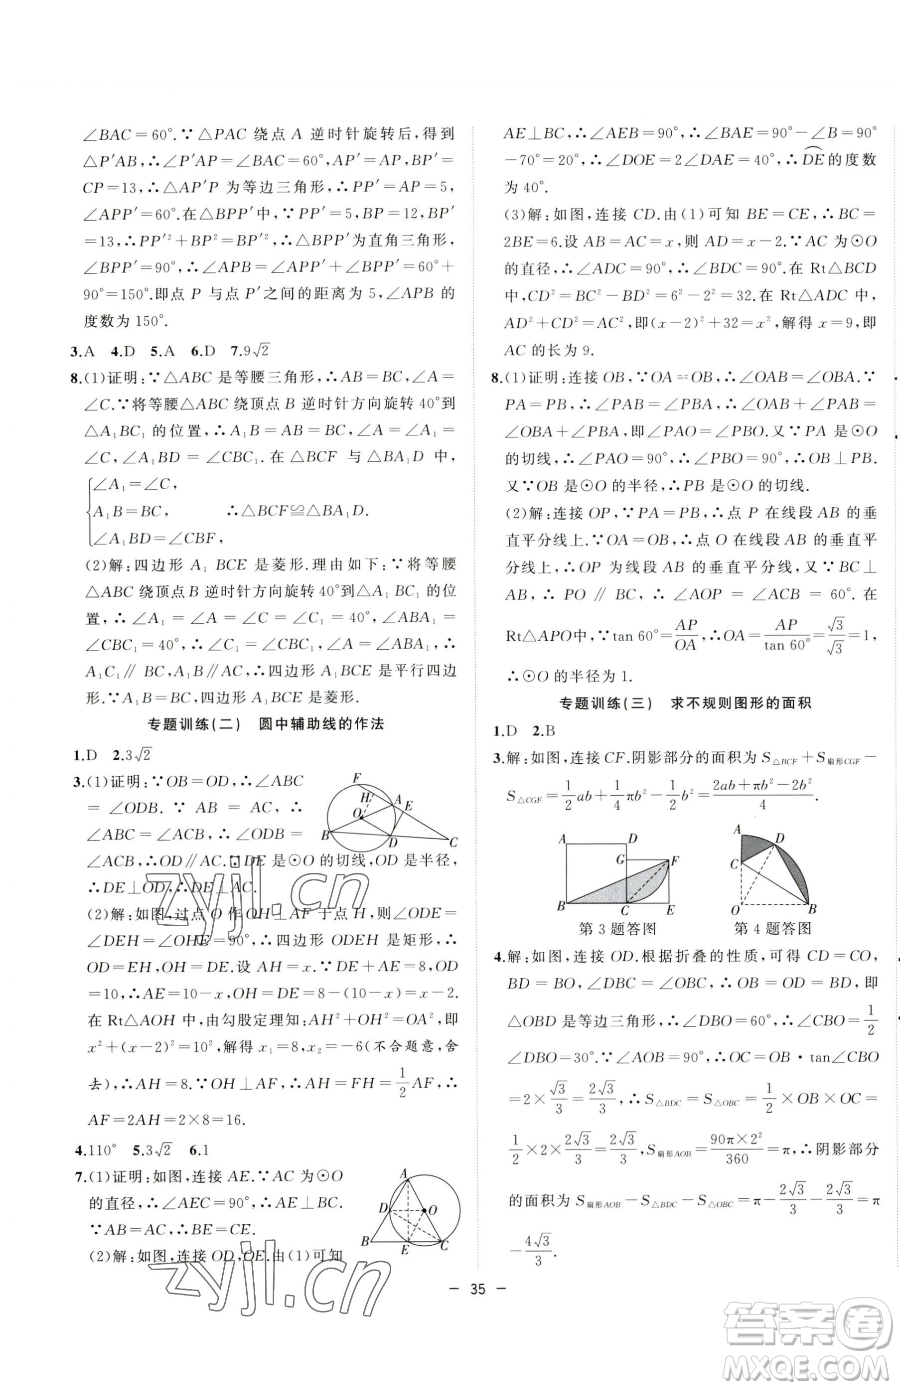 ∠BAC=60°.∵△PAC 绕点 A 逆时针旋转后,得到
△P′AB,∴∠P′AP=∠BAC=60°,AP′=AP,BP′=
CP=13,∴△AP′P 为等边三角形,∴PP′=AP=5,
∠APP′=60°.在△BPP′中,∵PP′=5,BP=12,BP′
=13,∴PP′²+BP²=BP′²,∴△BPP′为直角三角形,
∠BPP′=90°,∴∠APB=∠APP′+∠BPP′=60°+
90°=150°.即点 P 与点 P′之间的距离为 5,∠APB 的
度数为 150°.
3.A 4.D 5.A 6.D 7.9√2
8.(1)证明:∵△ABC 是等腰三角形,∴AB=BC,∠A=
∠C.∵将等腰△ABC 绕顶点 B 逆时针方向旋转 40°到
△A₁BC₁ 的位置,∴A₁B=AB=BC,∠A₁=∠A=
∠C,∠A₁BD=∠CBC₁.在△BCF 与△BA₁D 中,
∠A₁=∠C,
A₁B=BC, ∴△BCF≌△BA₁D.
∠A₁BD=∠CBF,
(2)解:四边形 A₁BCE 是菱形.理由如下:∵将等腰
△ABC 绕顶点 B 逆时针方向旋转 40°到△A₁BC₁ 的位
置,∴∠A₁=∠A=∠C=∠C₁=40°,∠ABA₁=
∠CBC₁=40°,∴∠C₁=∠CBC₁,∠A=∠ABA₁,∴
A₁C₁∥BC,A₁B∥AC,∴四边形 A₁BCE 是平行四边
形.∵A₁B=BC,∴四边形 A₁BCE 是菱形.
专题训练(二) 圆中辅助线的作法
1.D 2.3√2
3.(1)证明:∵OB=OD,∴∠ABC
=∠ODB.∵AB=AC,∴
∠ABC=∠ACB,∴∠ODB=
∠ACB,∴OD∥AC.∵DE 是⊙O 的切线,OD 是半径,
∴DE⊥OD,∴DE⊥AC.
(2)解:如图,过点 O 作 OH⊥AF 于点 H,则∠ODE=
∠DEH=∠OHE=90°,∴四边形 ODEH 是矩形,∴
OD=EH,OH=DE.设 AH=x.∵DE+AE=8,OD
=10,∴AE=10-x,OH=DE=8-(10-x)=x-2.
在 Rt△AOH 中,由勾股定理知:AH²+OH²=OA²,即
x²+(x-2)²=10²,解得 x₁=8,x₂=-6(不合题意,舍
去),∴AH=8.∵OH⊥AF,∴AH=FH=1/2AF,∴
AF=2AH=2×8=16.
4.110° 5.3√2 6.1
7.(1)证明:如图,连接 AE.∵AC 为⊙O
的直径,∴∠AEC=90°,∴AE⊥BC.
∵AB=AC,∴BE=CE.
(2)解:如图,连接 OD,OE.由(1)可知
AE⊥BC,∴∠AEB=90°,∴∠BAE=90°-∠B=90°
-70°=20°,∴∠DOE=2∠DAE=40°,∴DE的度数
为 40°.
(3)解:如图,连接 CD.由(1)可知 BE=CE,∴BC=
2BE=6.设 AB=AC=x,则 AD=x-2.∵AC 为⊙O
的直径,∴∠ADC=∠BDC=90°.在 Rt△BCD
中,CD²=BC²-BD²=6²-2²=32.在 Rt△ADC 中,
AD²+CD²=AC²,即(x-2)²+32=x²,解得 x=9,即
AC 的长为 9.
8.(1)证明:连接 OB,∵OA=OB,∴∠OAB=∠OBA.∵
PA=PB,∴∠PAB=∠PBA,∴∠OAB+∠PAB=
∠OBA+∠PBA,即∠PAO=∠PBO.又∵PA 是⊙O
的切线,∴∠PAO=90°,∴∠PBO=90°,∴OB⊥PB.
又∵OB 是⊙O 的半径,∴PB 是⊙O 的切线.
(2)解:连接 OP,∵PA=PB,∴点 P 在线段 AB 的垂
直平分线上.∵OA=OB,∴点 O 在线段 AB 的垂直平
分线上,∴OP 为线段 AB 的垂直平分线.又∵BC⊥
AB,∴PO∥BC,∴∠AOP=∠ACB=60°.在
Rt△APO中,∵tan 60°=AP/OA,∴OA=AP/tan60°=√3/√3=1,
∴⊙O 的半径为 1.
专题训练(三) 求不规则图形的面积
1.D 2.B
3.解:如图,连接 CF.阴影部分的面积为 S△BCF+S扇形CGF-
S△CGF=1/2ab+1/4πb²-1/2b²=(2ab+πb²-2b²)/4.
第 3 题答图 第 4 题答图
4.解:如图,连接 OD.根据折叠的性质,可得 CD=CO,
BD=BO,∠DBC=∠OBC,∴OB=OD=BD,∴
△OBD 是等边三角形,∴∠DBO=60°,∴∠CBO=1/2
∠DBO=30°.∵∠AOB=90°,∴OC=OB·tan∠CBO
=2×√3/3=2√3/3,∴S△BDC=S△OBC=1/2×OB×OC=
1/2×2×2√3/3=2√3/3,S扇形AOB=90π×2²/360=π,∴阴影部分
的面积为 S扇形AOB-S△BDC-S△OBC=π-2√3/3-2√3/3=π
-4√3/3.
A
B
C
D
E
F
H
O
A
B
C
D
E
O
A
B
C
D
E
F
G
A
B
C
D
O
zyjl.cn
zyjl.cn
答案圈
MXQE.COM
- 35 -